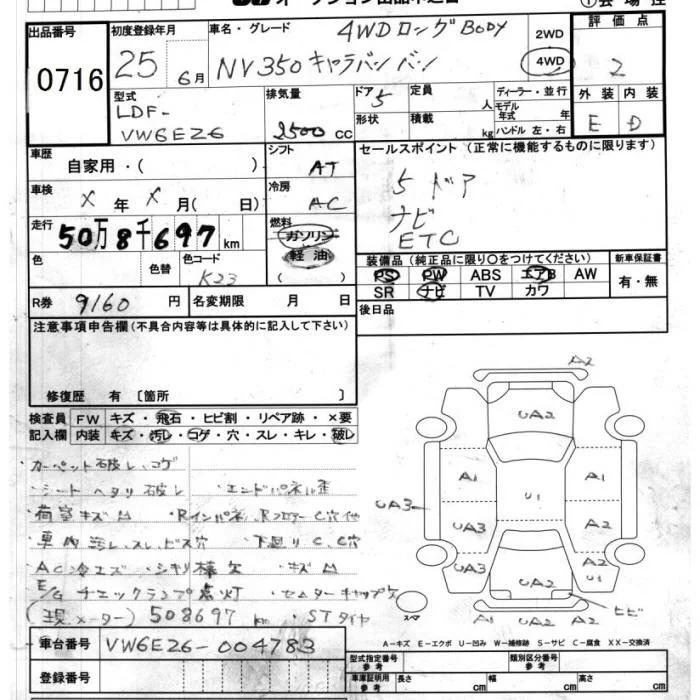 出品番号
0716
初度登録年月
25 6月
車名・グレード
4WDロングBODY
NV350キャラバン バン
2WD
4WD
評価点
2
外装 内装
E D
型式
LDF-
VW6E26
排気量
2500 cc
ドア 5
形状
定員 人
積載 kg
ディーラー・並行
モデル年式 年
ハンドル 左・右
車歴
自家用・( )
シフト
AT
セールスポイント (正常に機能するものに限ります)
5ドア
ナビ
ETC
車検
X 年 X 月( 日)
冷房
AC
走行
50万8千697 km
燃料
ガソリン
軽油
( )
色
色替
色コード
K23
装備品 (純正品に限り○をつけてください)
新車保証書
PS PW ABS エアB AW
SR ナビ TV カワ
有・無
R券 9160 円
名変期限 月 日
後日品
注意事項申告欄(不具合内容等は具体的に記入して下さい)
修復歴 有 〔箇所 〕
検査員 FW キズ・飛石・ヒビ割・リペア跡・×要
記入欄 内装 キズ・汚レ・コゲ・穴・スレ・キレ・破レ
カーペット破レ、コゲ
・シートヘタリ破レ ・エンドパネル歪
・荷室キズM ・Rインパネ、Rフロアー C穴他
・車内汚レ、スレ、ビス穴 ・下廻り C、C穴
AC冷エズ ・シキリ棒欠 ・キズM
E/G チェックランプ点灯 ・センターキャップ欠
(現メーター) 508697 km ・STタイヤ
A2
UA2
A1
A1
UA3
U1
UA3
A2
UA3
UA2
A2
U1
ヒビ
スペア
A1
UA2
A2
A=キズ E=エクボ U=凹み W=補修跡 S=サビ C=腐食 XX=交換済
車台番号 VW6E26-004783
登録番号
型式指定番号
参考
類別区分番号
参考
車庫証明用
参考
長さ cm
幅 cm
高さ cm